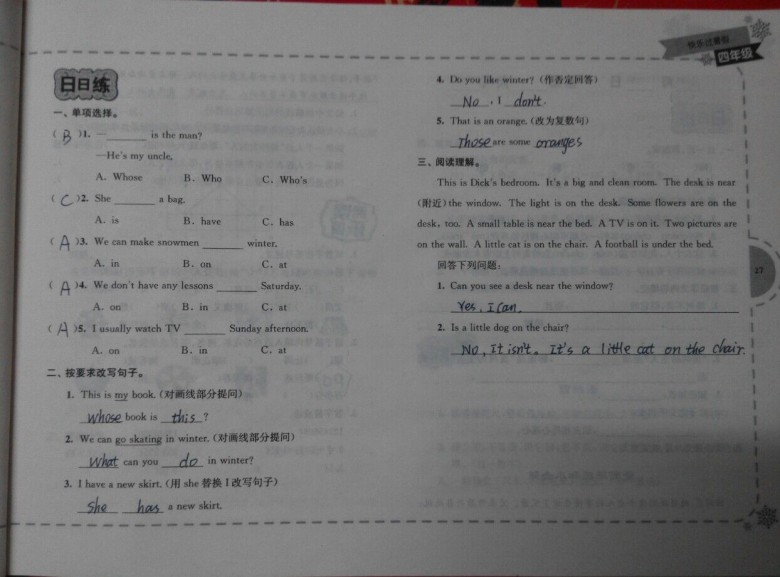 快乐过寒假
四年级
日日练
一、单项选择。
( B )1. —______ is the man?
—He's my uncle.
A. Whose B. Who C. Who's
( C )2. She ______ a bag.
A. is B. have C. has
( A )3. We can make snowmen ______ winter.
A. in B. on C. at
( A )4. We don't have any lessons ______ Saturday.
A. on B. in C. at
( A )5. I usually watch TV ______ Sunday afternoon.
A. on B. in C. at
二、按要求改写句子。
1. This is my book. (对画线部分提问)
whose book is this ?
2. We can go skating in winter. (对画线部分提问)
What can you do in winter?
3. I have a new skirt. (用 she 替换 I 改写句子)
She has a new skirt.
4. Do you like winter? (作否定回答)
No , I don't.
5. That is an orange. (改为复数句)
Those are some oranges
三、阅读理解。
This is Dick's bedroom. It's a big and clean room. The desk is near
(附近) the window. The light is on the desk. Some flowers are on the
desk, too. A small table is near the bed. A TV is on it. Two pictures are
on the wall. A little cat is on the chair. A football is under the bed.
回答下列问题:
1. Can you see a desk near the window?
Yes, I can.
2. Is a little dog on the chair?
No, It isn't. It's a little cat on the chair.
27